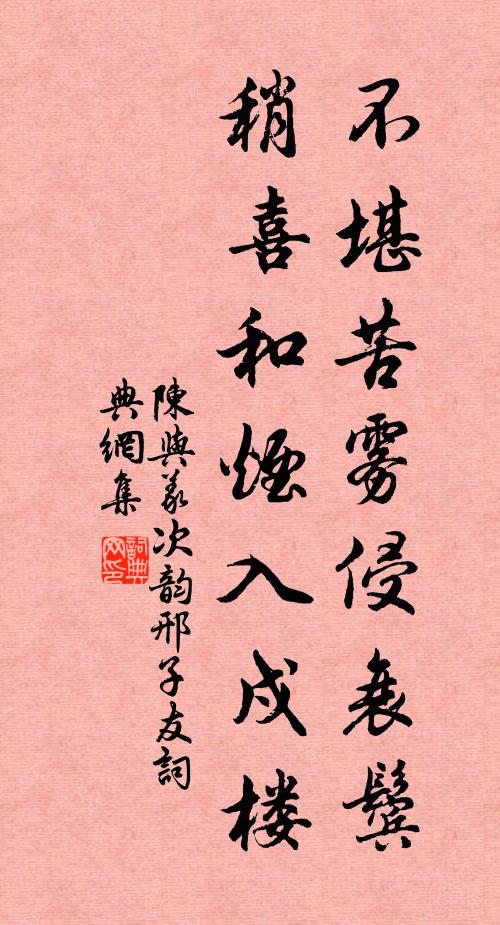 不堪苦雾侵衰鬓
稍喜和煙入戍楼
陳與義次韵邢子友詞
典網集
詞典網印